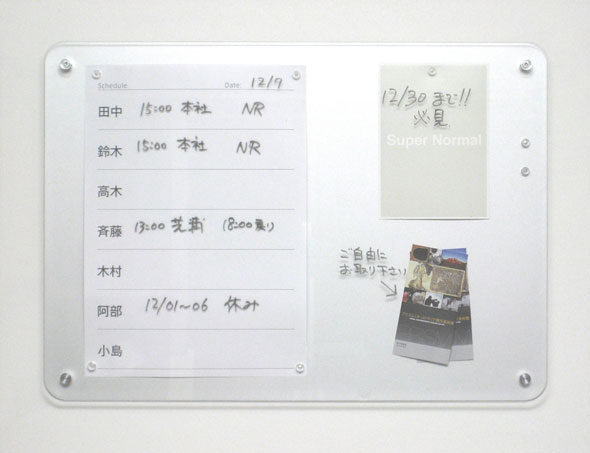 Schedule Date: 12/7
田中 15:00 本社 NR
鈴木 15:00 本社 NR
高木
斉藤 13:00 芝浦 18:00戻り
木村
阿部 12/01～06 休み
小島
12/30まで!!
必見
Super Normal
ご自由に
お取り下さい